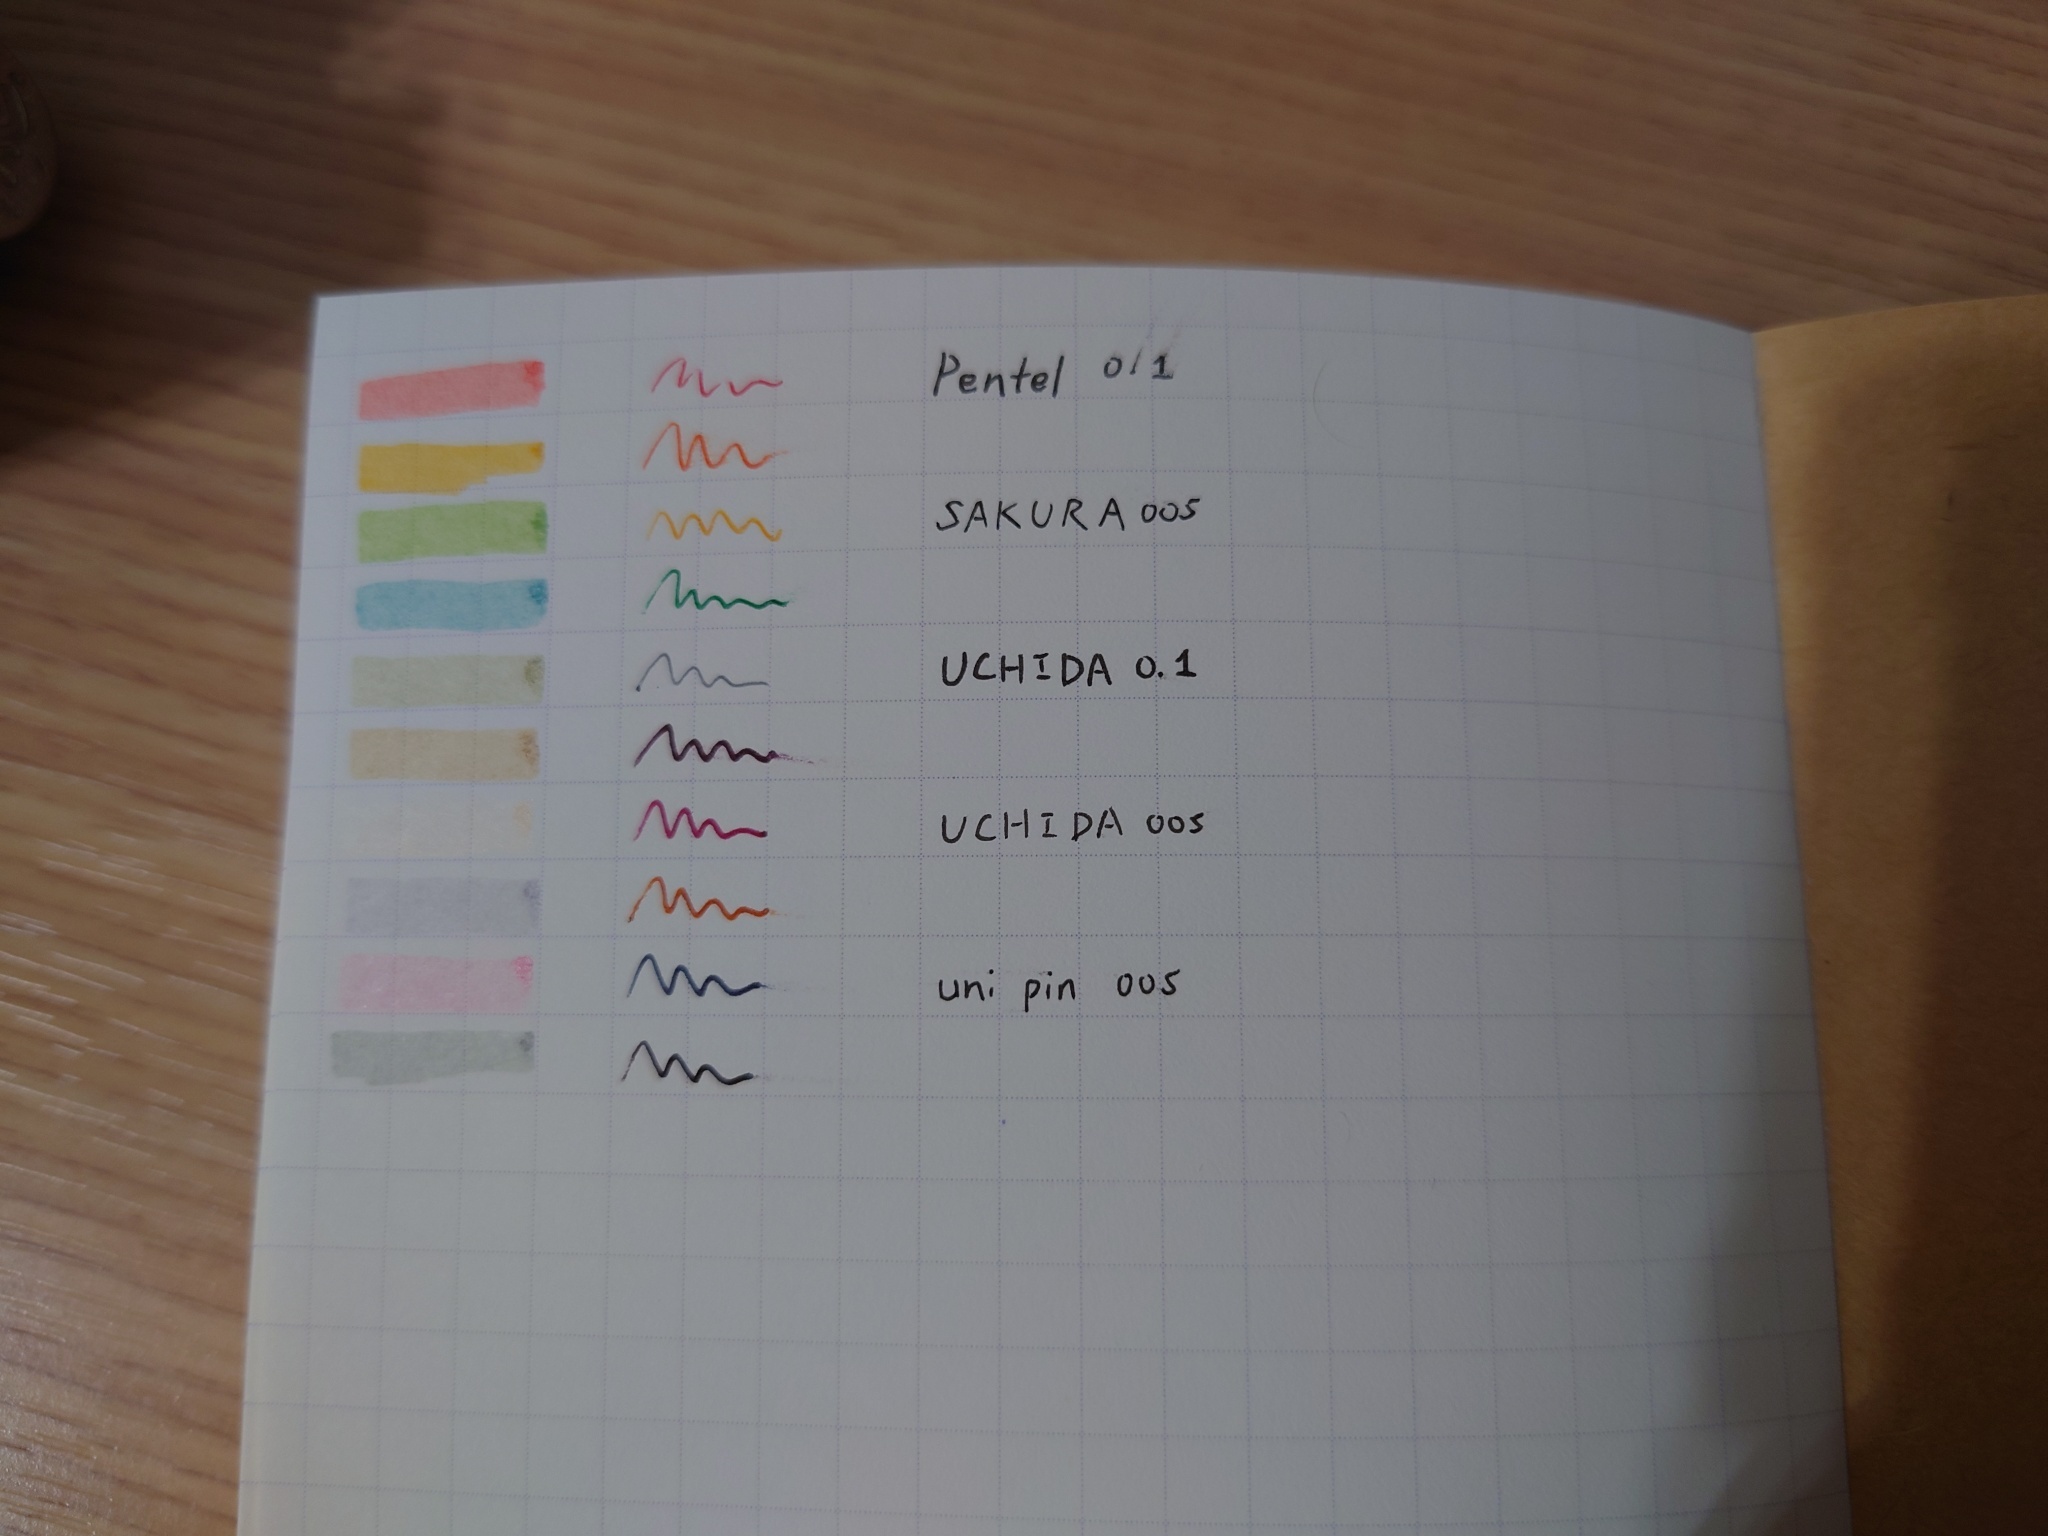 Pentel 0/1
SAKURA 005
UCHIDA 0.1
UCHIDA 005
uni pin 005